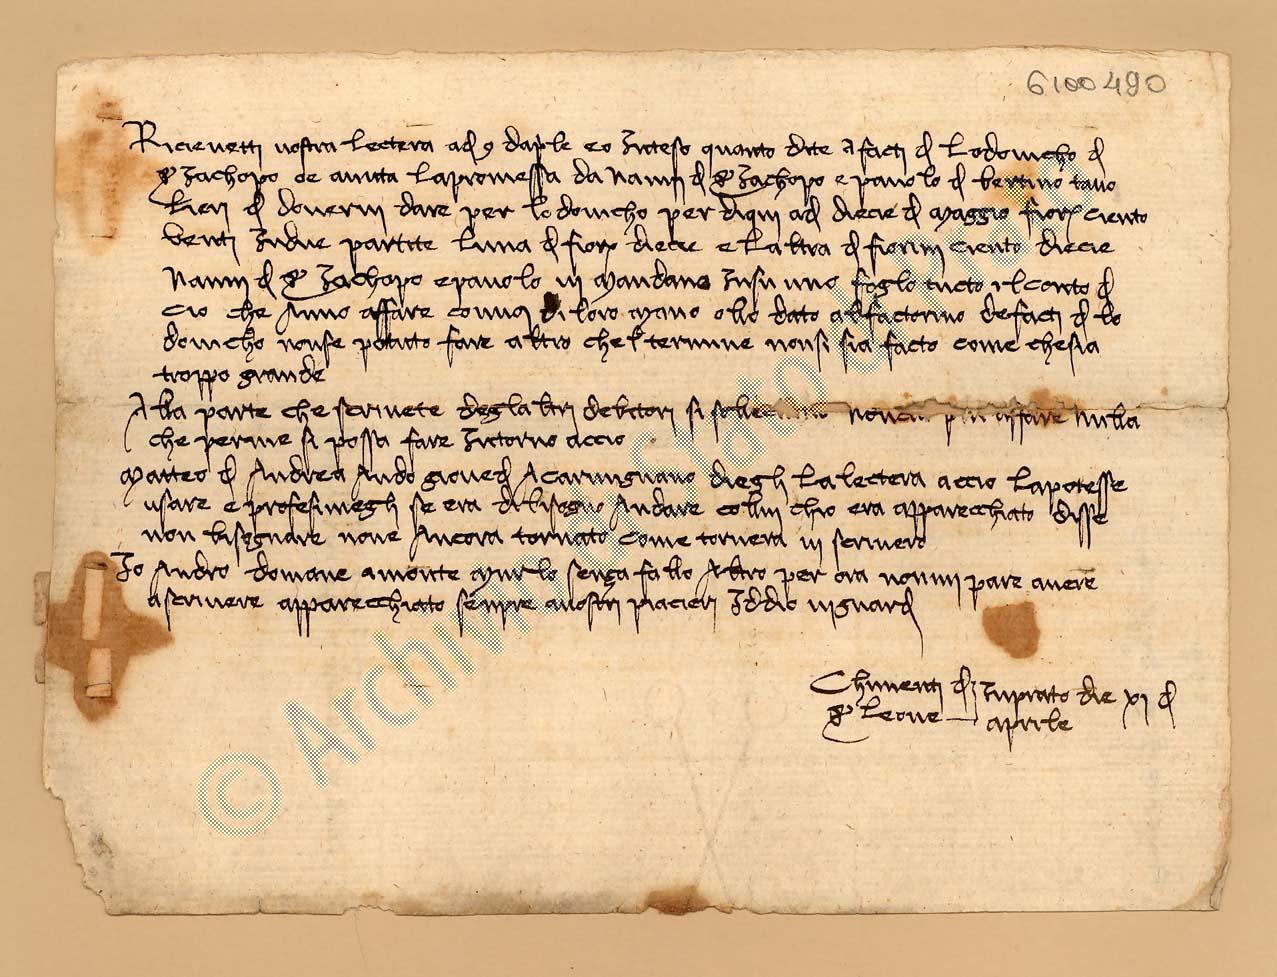 6100490
Ricievetti vostra lectera a dì 9 d'aprile e o inteso quanto dite a facti di Lodovicho di
ser Zachopo se avuta la promessa da Nanni di ser Zachopo e Pavolo di Bertino tavo
lieri di dovervi dare per Lodovicho per di qui a dì diecie di maggio fior. ciento
venti in due partite l'una di fior. diecie e l'altra di fiorini ciento diecie
Nanni di ser Zachopo e Pavolo vi mandano in su uno foglo tucto il conto di
cio che anno affare con voi di loro mano ollo dato al factorino de facti di Lo
dovicho non se potuto fare altro che 'l termine non si sia facto come che sia
troppo grande
Alla parte che scrivete degl altri debitori si non più affare nulla
che per me si possa fare intorno accio
Matteo di Andrea ando giovedì a Carmignano diegli la lectera accio la potesse
usare e profersimegli se era di bisogno andare collui ch'io era apparecchiato disse
non bisognare none ancora tornato come tornera vi scrivero
Io andrò domane a Monte Murlo senza fallo altro per ora non mi pare avere
a scrivere apparecchiato senpre a vostri piacieri Iddio vi guardi
Chimenti di
ser Leone
in Prato die XI di
aprile
© Archivio di Stato di Prato